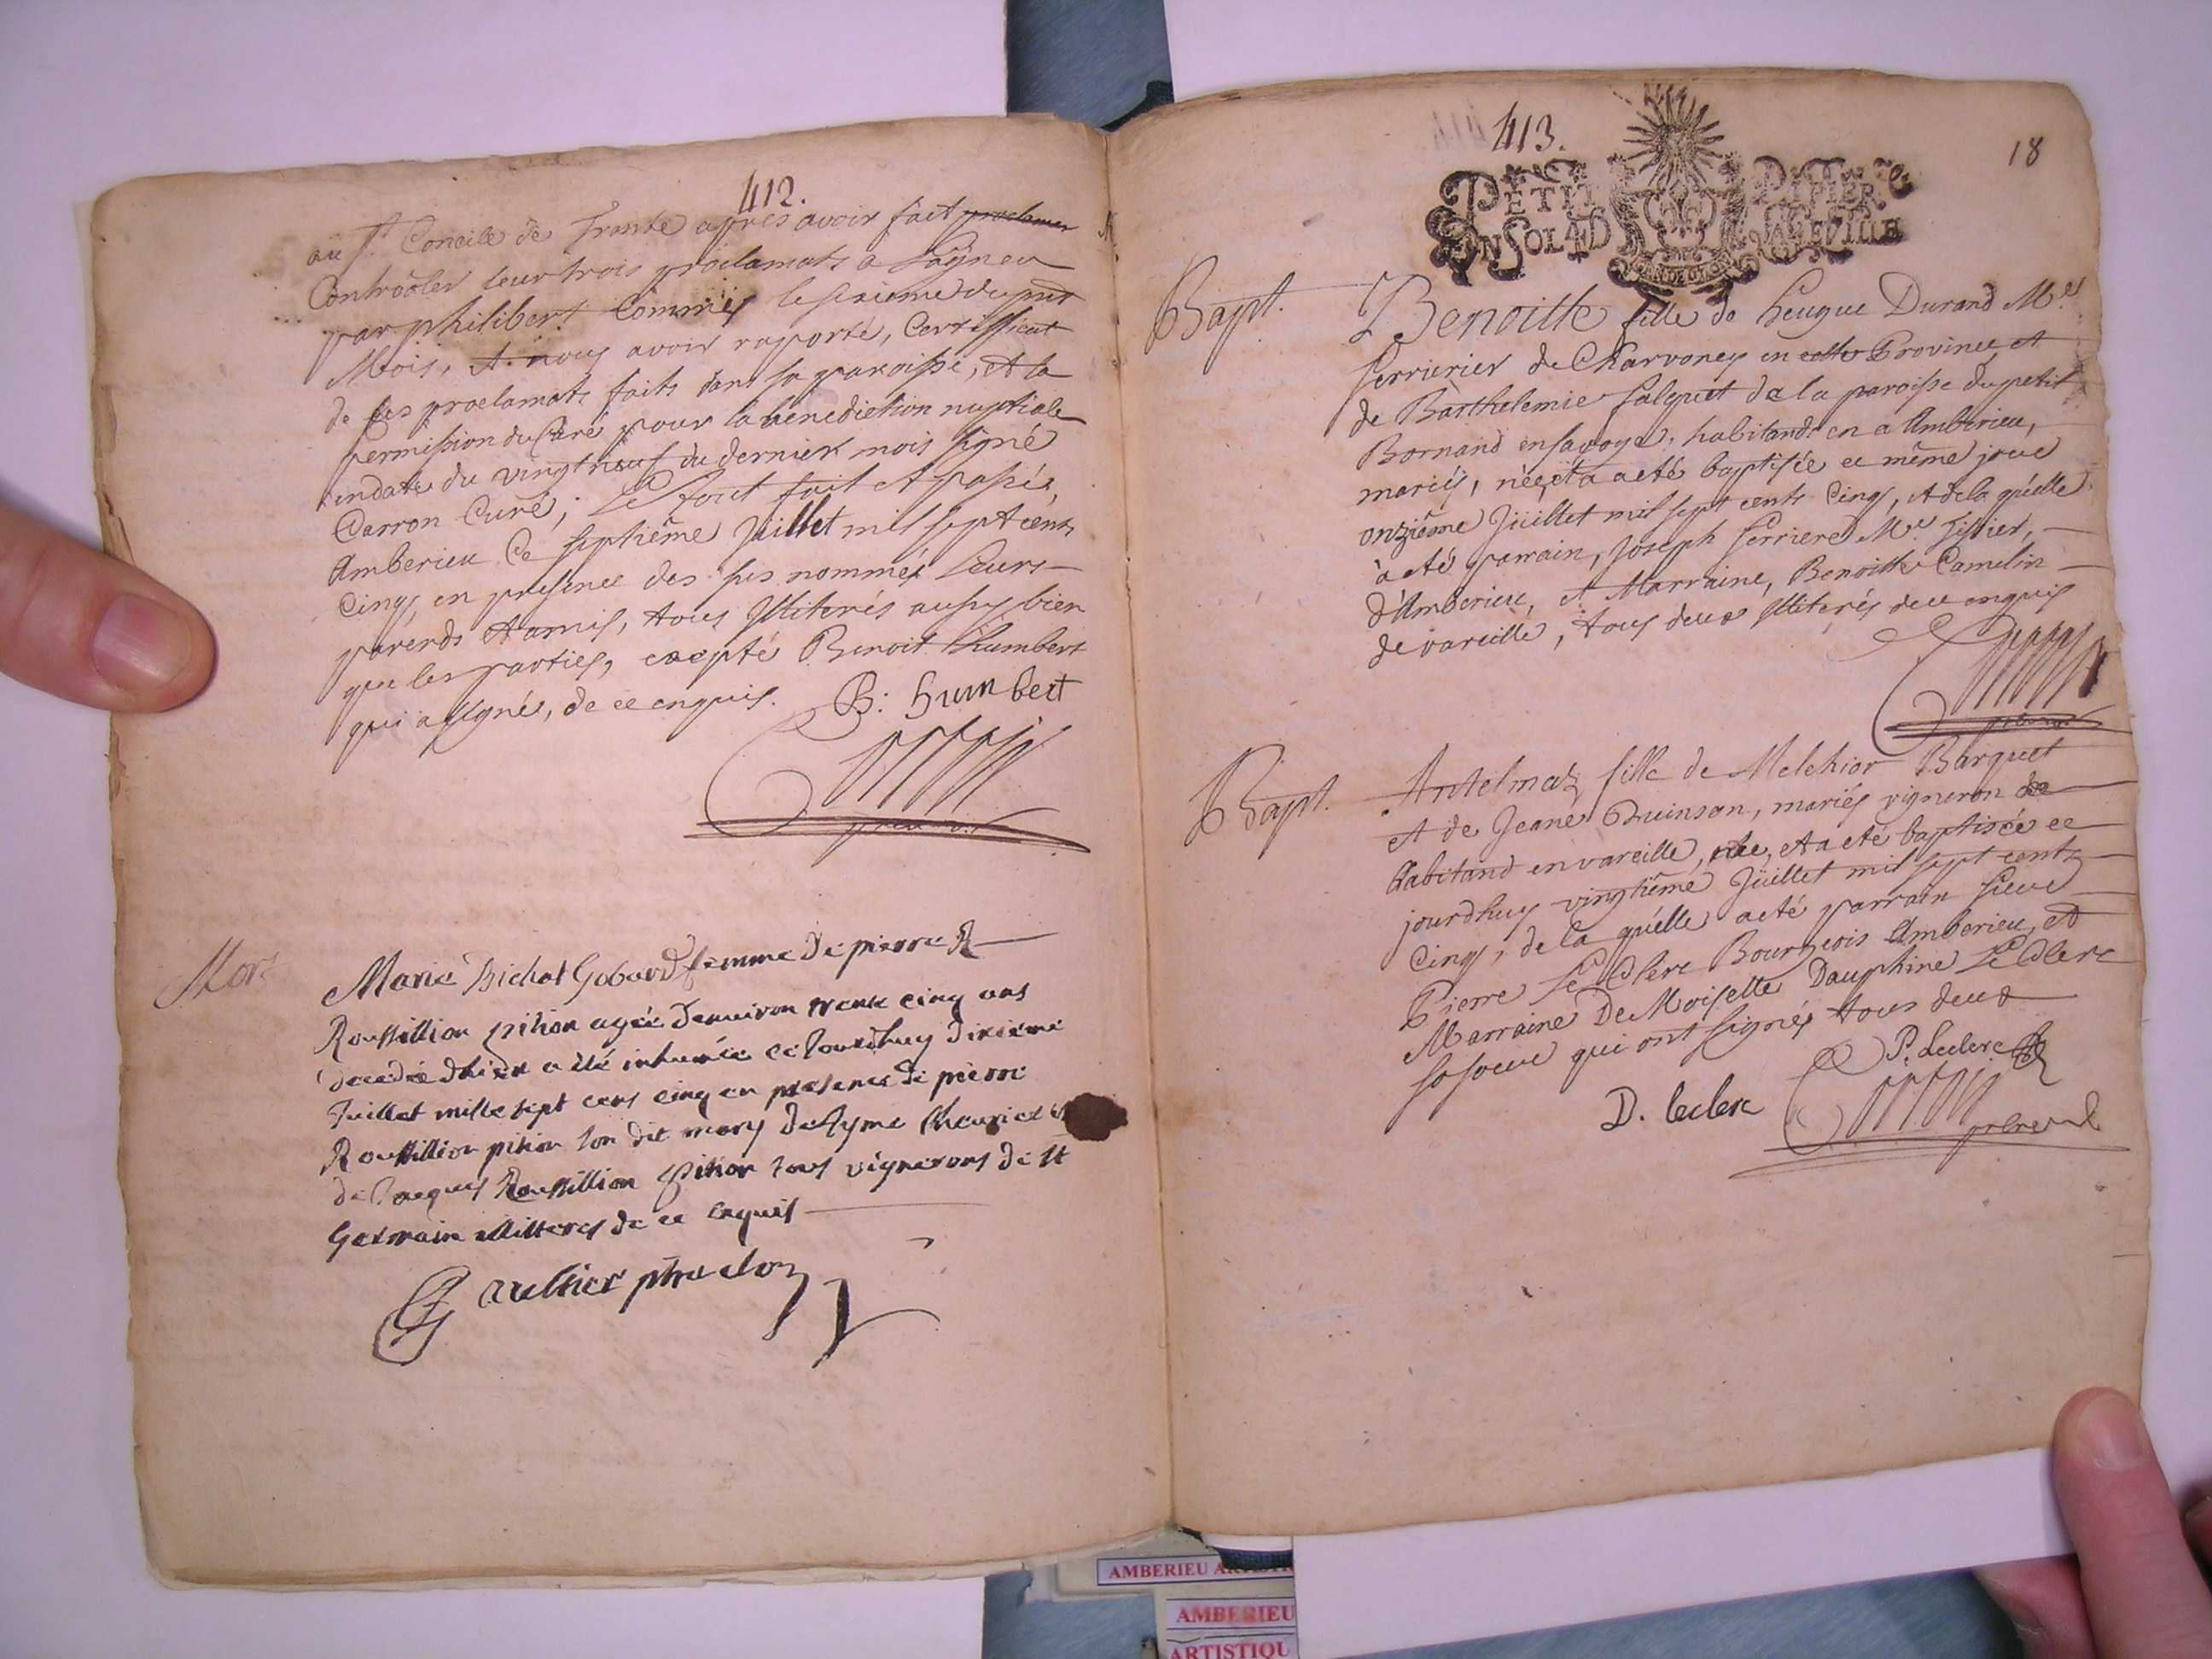 412.
au St. Concile de Trante apres avoir fait proclamer
Contrôoler leur trois proclamats a Lagneu
par philibert Commis le sixieme du pnt
Mois, et nous avoir raporté, Certifficat
de ses proclamats faits dans sa paroisse, et la
permission du Curé pour la benediction nuptiale
en date du vingt neuf du dernier mois signé
Carron Curé; Le tout fait et passé,
Amberieu Ce septiême Juillet mil sept cents
Cinq, en presence des sus nommés Leurs
parends et amis, tous Illiterés aussy bien
que les parties, excepté Benoit Humbert
qui a signé, de ce enquis. B: humbert
Mors
Marie bichat Gobard femme de pierre R
Roussillion pition agée denuiron trente cinq ans
decedée dhier a été inhumée ce Jourdhuy dixiéme
Juillet mille sept cens cinq en presence de pierre
Roussillion pition son dit mary de Ayme
de Jacques Roussillion pition tous vignerons de st
Germain illitteres de ce enquis
Gaultier ptre
413.
18
PETIT PAPIER
UN SOL 4 D LA FEUILLE
Bapt.
Benoitte fille de heugue Durand Mre
serrurier de Charvoney en cette Province, et
de Barthelemie salquet de la paroisse du petit
Bornand en savoye, habitands en a Amberieu,
mariés, née, et a aeté baptisée ce même jour
onziême Juillet mil sept cents Cinq, et de la quelle
à eté parrain, Joseph ferriere Mre. Tissier,
d'Amberieu, et Marraine, Benoitte Camelin
de vareille, tous deux Illiterés de ce enquis
Bapt.
Antelmaz fille de Melchior Barquet
et de Jeane Bruinson, mariés vigneron de
habitand en vareille, née, et a eté baptisée ce
jourdhuy vingtiême Juillet mil sept cents
Cinq, de la quelle a eté parrain sieur
Pierre Le Clerc Bourgeois Amberieu, et
Marraine DeMoiselle Dauphine Le Clerc
sa soeur qui ont signés tous deux
P. Leclerc
D. leclerc
AMBERIEU
AMBERIEU
ARTISTIQU